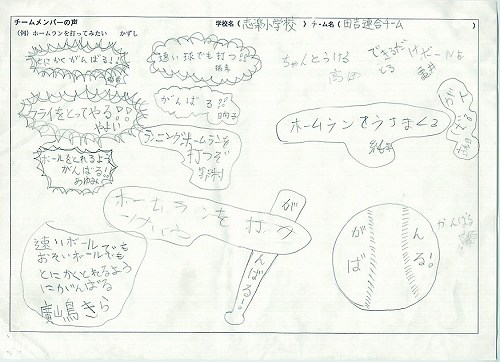 チームメンバーの声
(例)ホームランを打ってみたい かずし
学校名(志楽小学校) チーム名(田吉連合チーム)
とにかくがんばる!
速い球でも打つ!!
ちゃんとうける
フライをとってやる!!
やよい
がんばる!!
ホームランをうちまくる
がんばる
ランニングホームランを
打つぞ
ボールをとれるよう
がんばる!
あゆみ
ホームランを打つ
がんばる!!
がんばる!!
がんばる
速いボールでも
おそいボールでも
とにかくとれるよう
にがんばる
廣山鳥きら